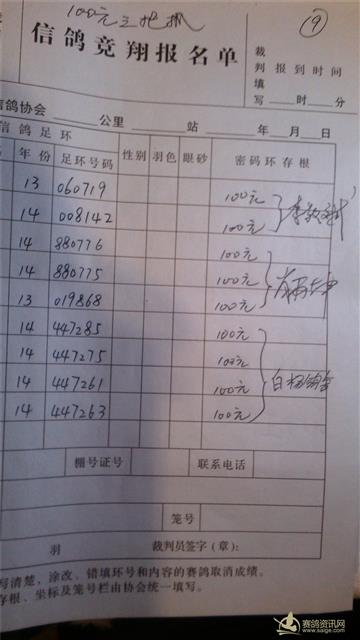 100元
⑨
信鸽竞翔报名单
裁
判 报到时间
填
写 时 分
信鸽协会 公里 站 年 月 日
信鸽足环
年份 足环号码 性别 羽色 眼砂 密码环存根
13 060719 100元
14 008142 100元
14 880776 100元
14 880775 100元
13 019868 100元
14 447285 100元
14 447275 100元
14 447261 100元
14 447263 100元
棚号证号 联系电话
笼号
羽 裁判员签字（章）：
写清楚，涂改、错填环号和内容的赛鸽取消成绩。
存根、坐标及笼号栏由协会统一填写。
赛鸽资讯网
www.saige.com